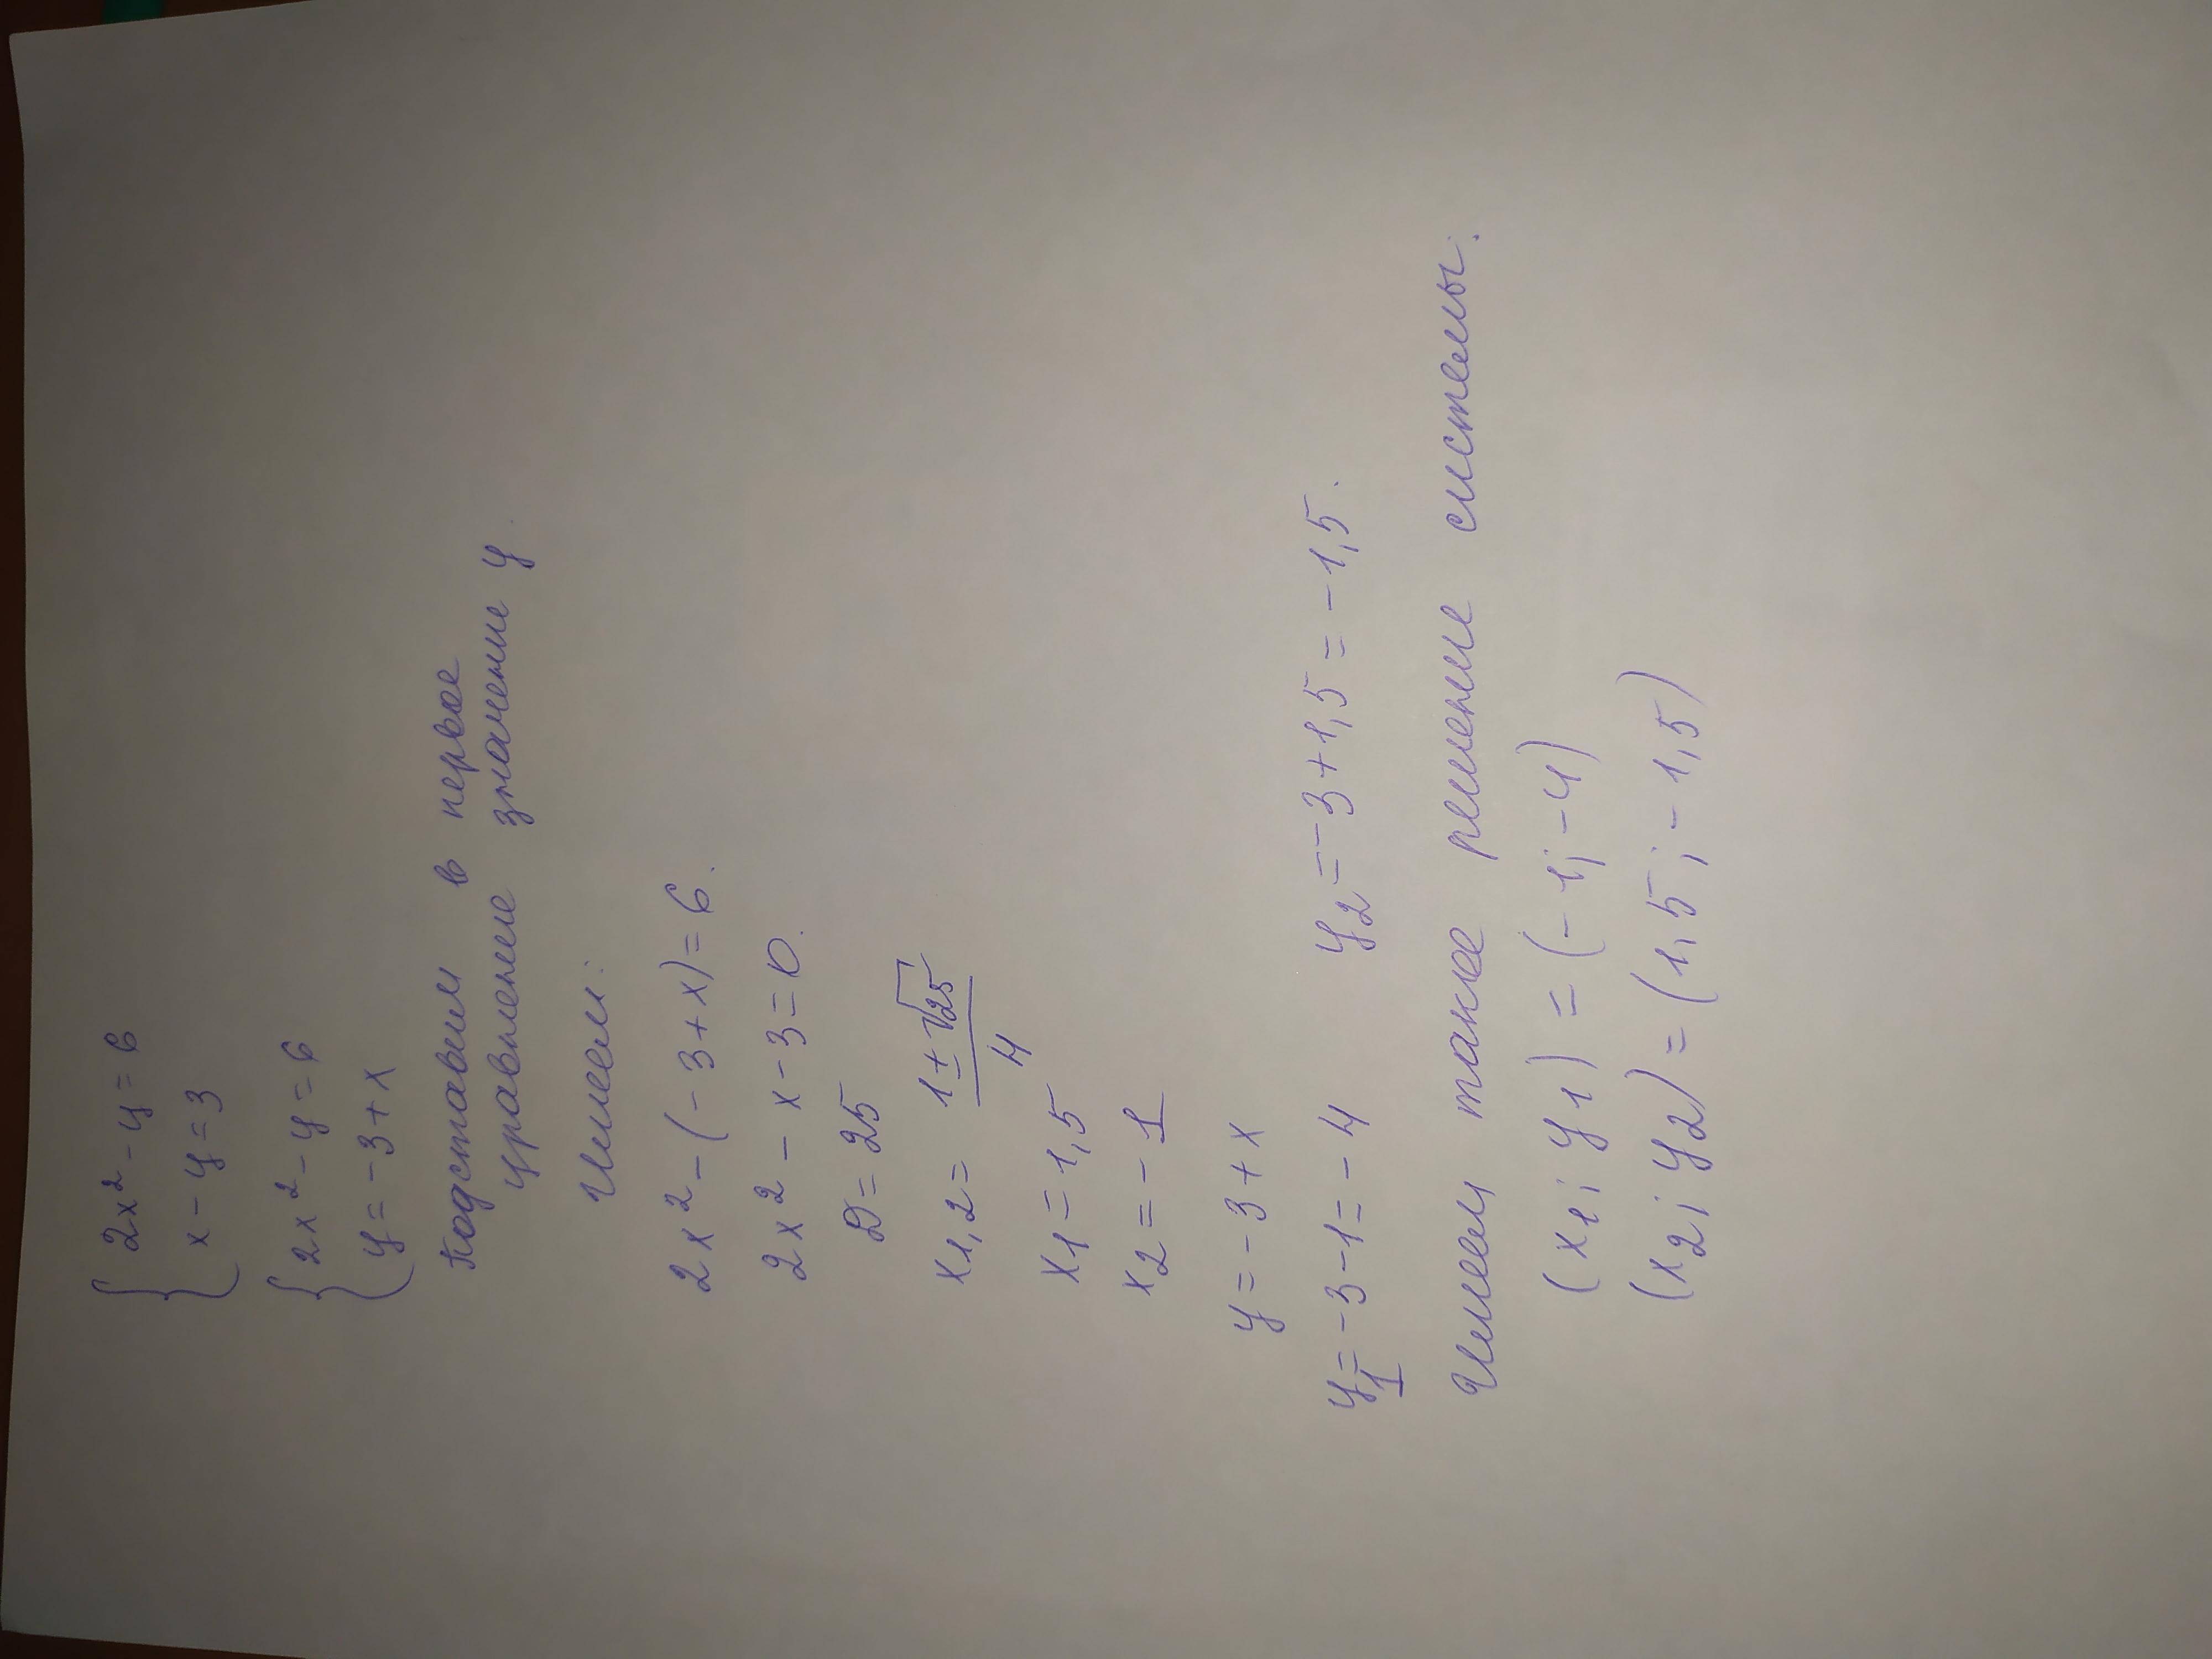 { 2x² - y = 6
x - y = 3
{ 2x² - y = 6
y = -3 + x
Подставим в первое
уравнение значение y.
Имеем:
2x² - (-3 + x) = 6.
2x² - x - 3 = 0.
D = 25
x1,2 = (1 ± √25)/4
x1 = 1,5
x2 = -1
y = -3 + x
y1 = -3 - 1 = -4 y2 = -3 + 1,5 = -1,5.
Имеем такое решение системы:
(x1; y1) = (-1; -4)
(x2; y2) = (1,5; -1,5)